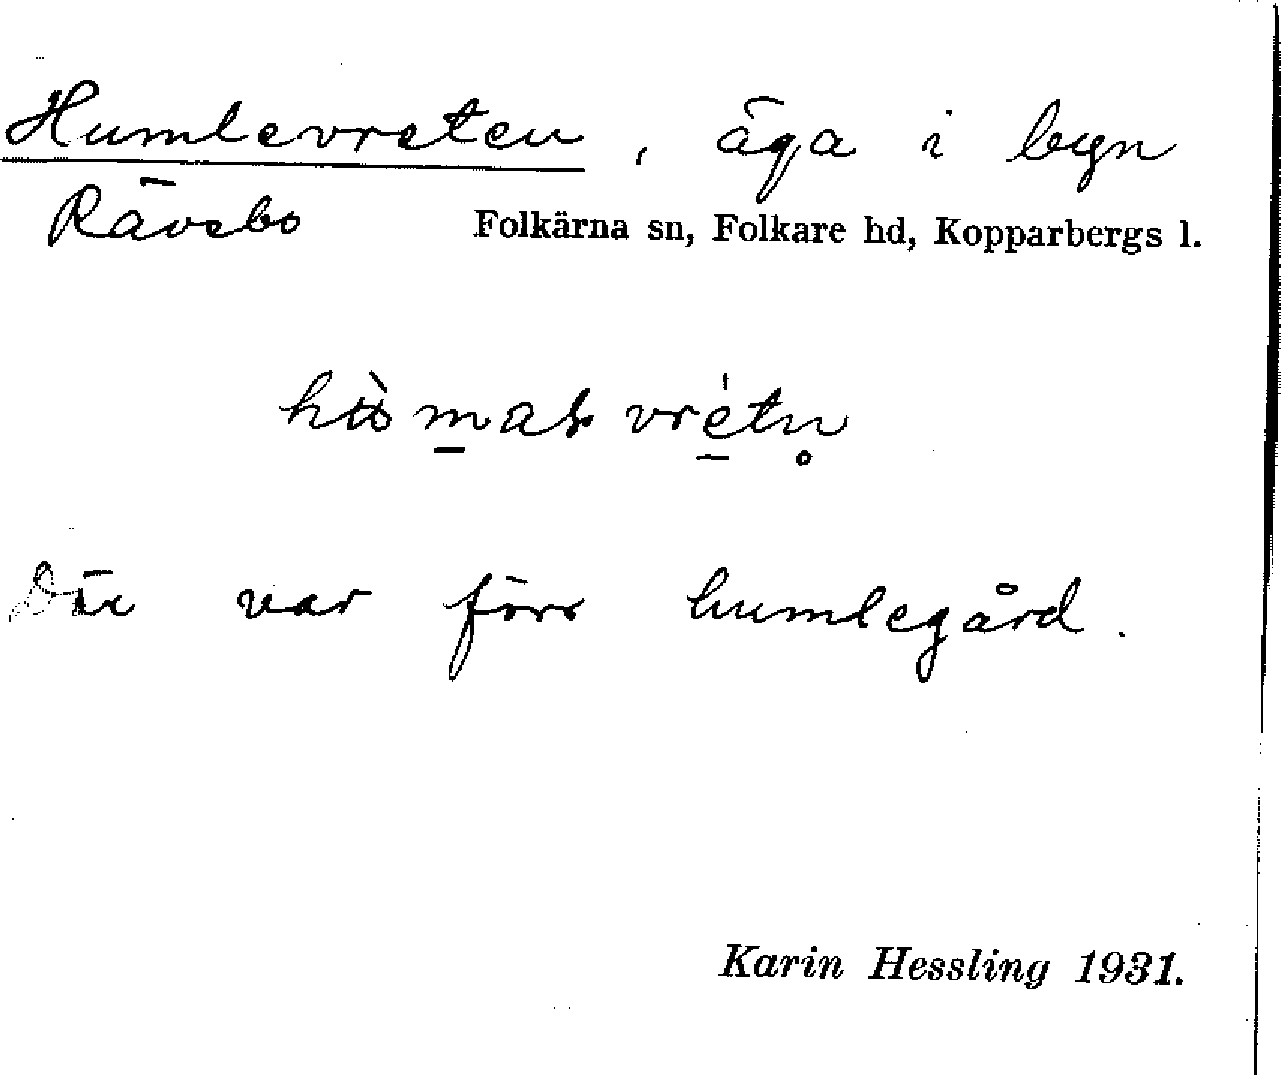 Humlevreten, äga i byn
Rävsbo Folkärna sn, Folkare hd, Kopparbergs l.
Där var förr humlegård.
Karin Hessling 1931.